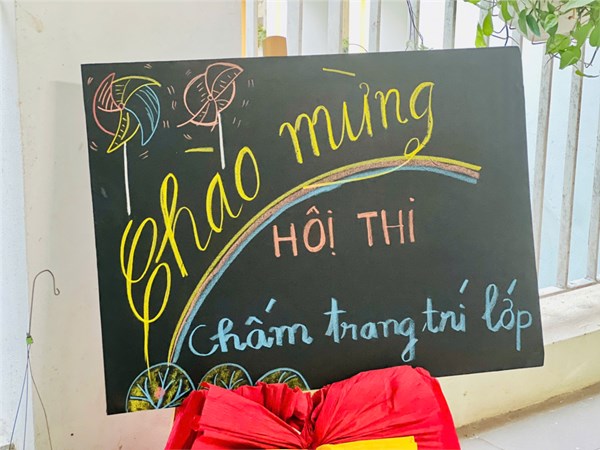 Chào mừng
HỘI THI
Chấm trang trí lớp